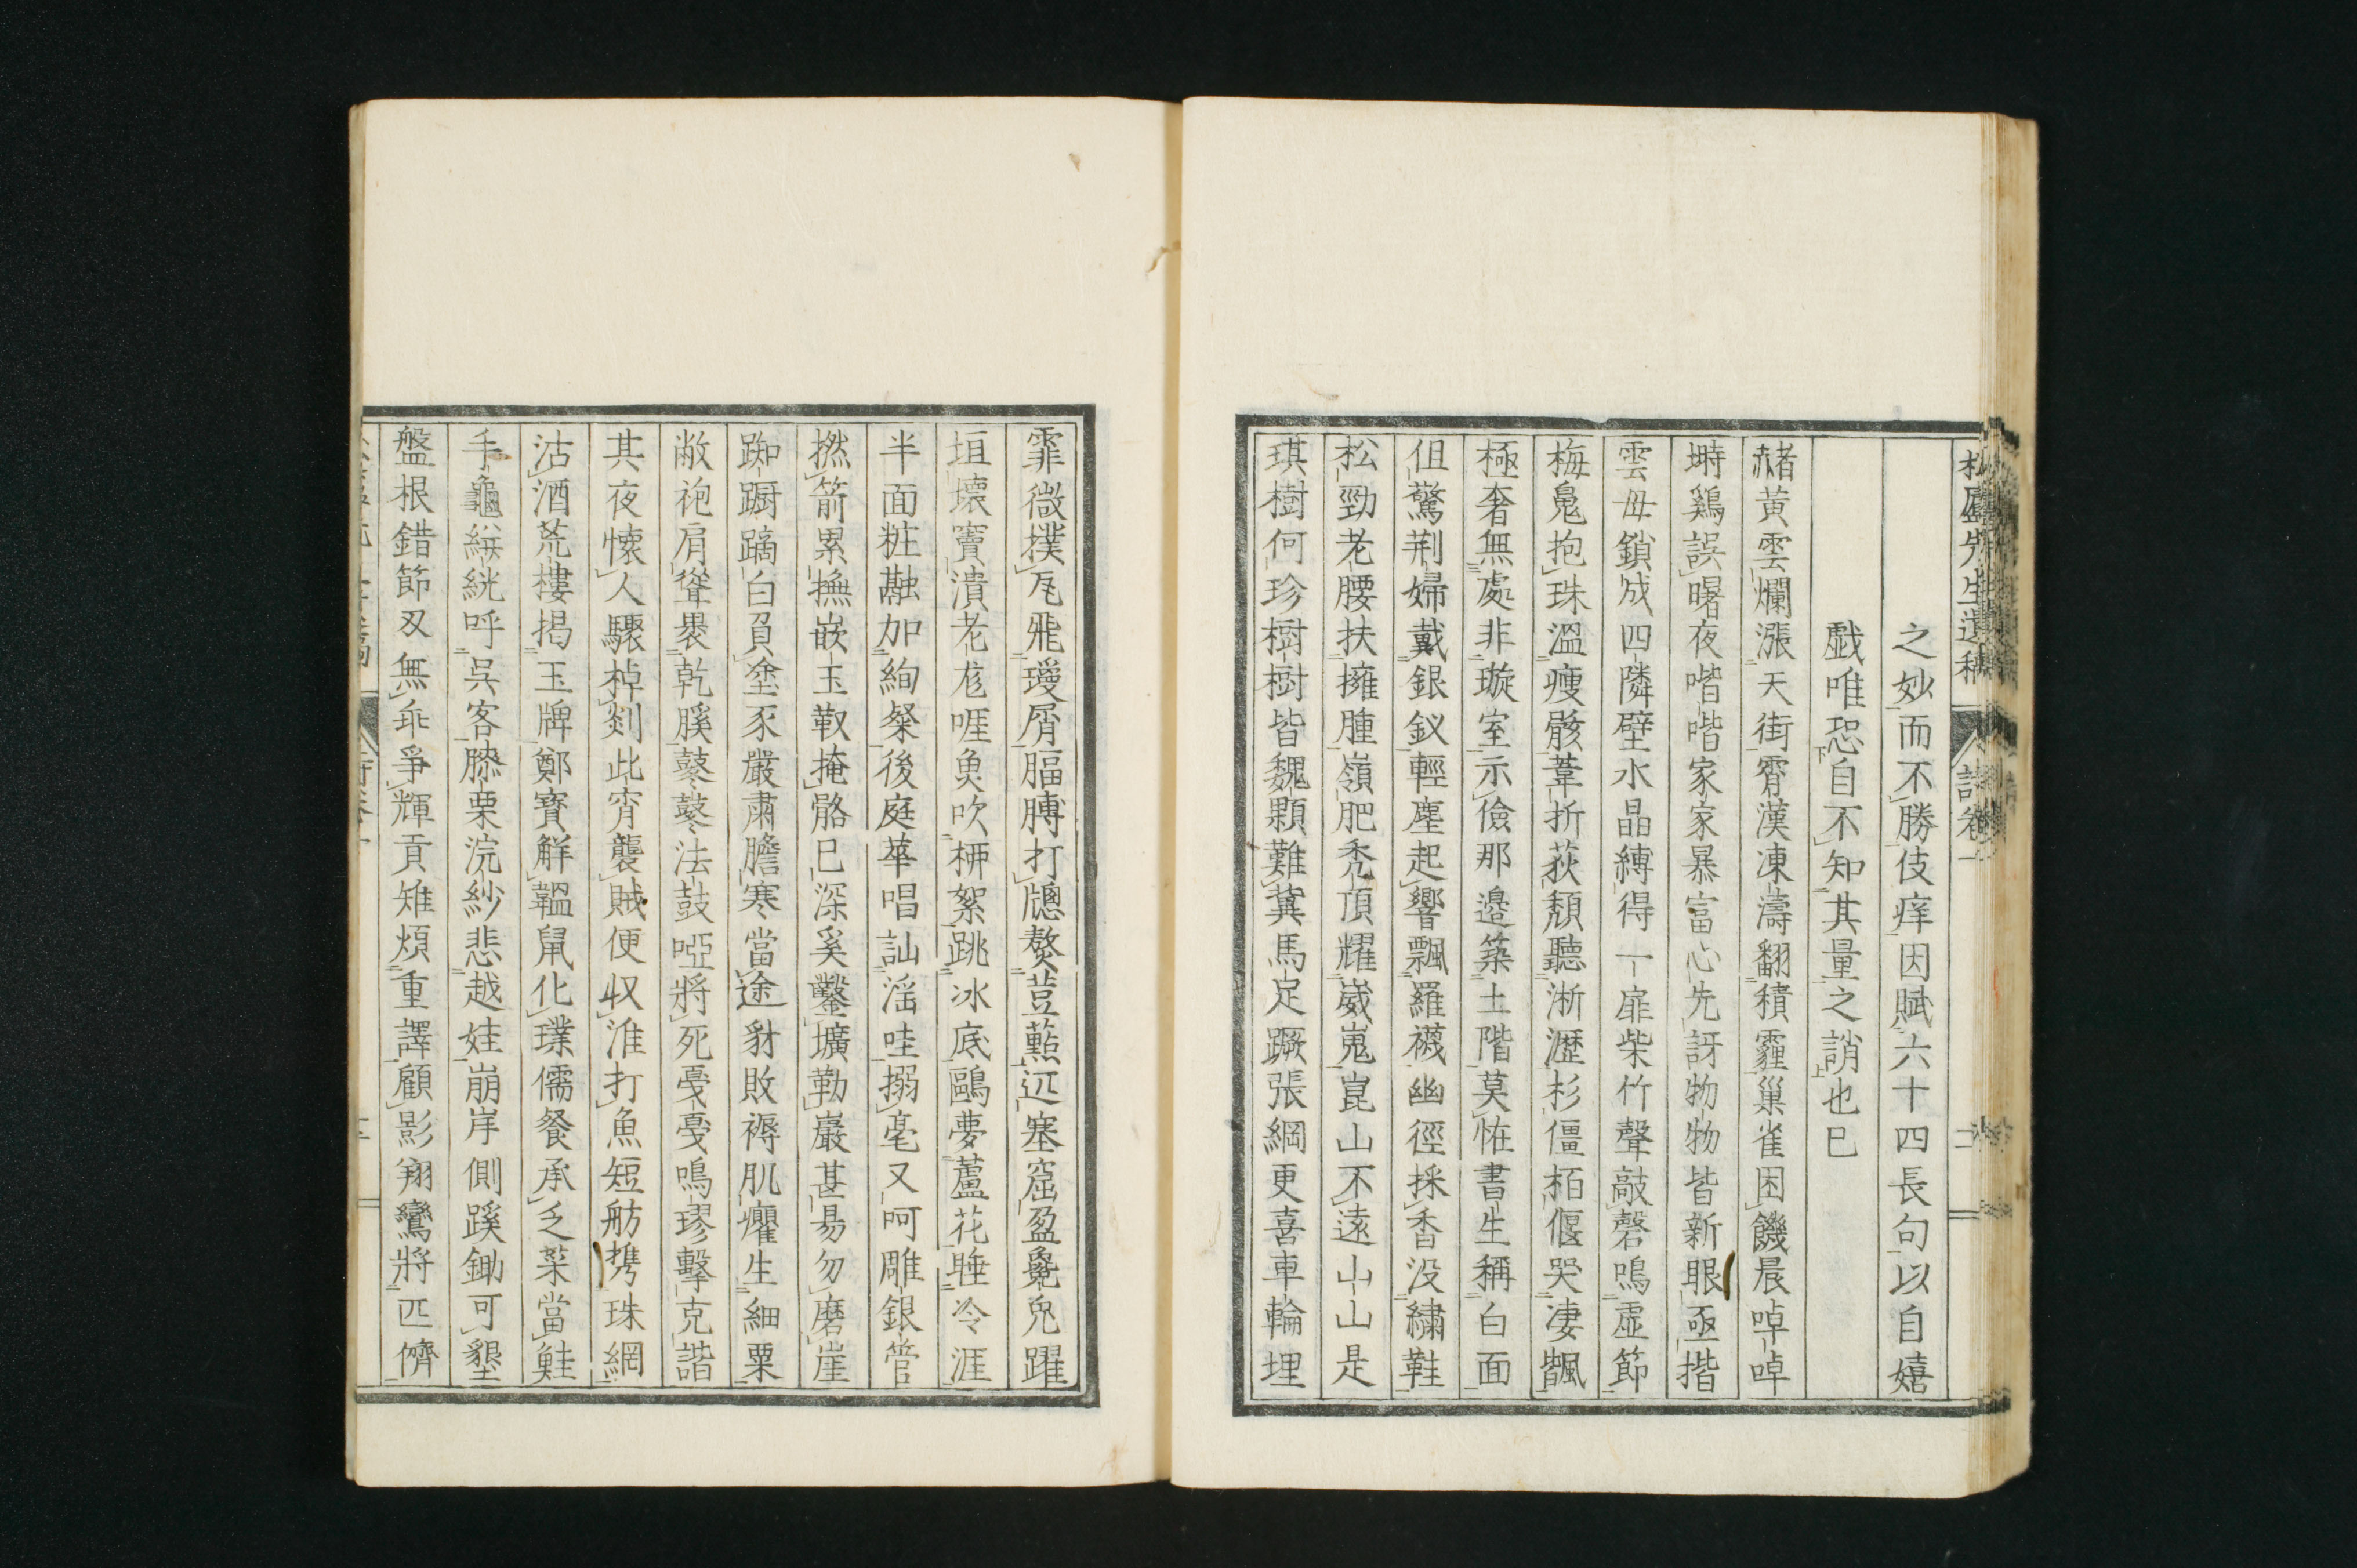 松廬先生遺稿 詩卷一 二
之妙而不勝伎痒因賦六十四長句以自嬉
戯唯恐自不知其量之誚也已
赭黃雲爛漲天街霄漢凍濤翻積霾巢雀困饑晨啅啅
塒鷄誤曙夜喈喈家家暴富心先訝物物皆新眼亟揩
雲母鎖成四隣壁水晶縛得一扉柴竹聲敲磬鳴虛節
梅鬼抱珠溫瘦骸葦折荻頹聽淅瀝杉僵栢偃哭凄颽
極奢無處非璇室示儉那邊築土階莫恠書生稱白面
但驚荆婦戴銀釵輕塵起響飄羅襪幽徑採香没繡鞋
松勁老腰扶擁腫嶺肥禿頂耀崴嵬崑山不遠山山是
琪樹何珍樹樹皆魏顆難冀馬足蹶張綱更喜車輪埋
霏微撲瓦飛璦屑腷膊打牕熬荳𦸐迊塞窟盈毚兒躍
垣壞竇潰老尨啀奐吹栁絮跳冰底鷗夢蘆花睡冷涯
半面粧融加絢粲後庭華唱訕滛哇搦毫又呵雕銀管
撚箭累撫嵌玉靫掩骼已深奚鑿壙勒巖甚易勿磨崖
踟蹰蹢白負塗豕嚴肅膽寒當途豺敗褥肌癯生細粟
敝袍肩聳褁乾膎鼕鼕法鼓啞將死戞戞鳴璆擊克諧
其夜懷人驟棹剡此宵襲賊便収淮打魚短舫携珠網
沽酒荒樓揭玉牌鄭寶解韞鼠化璞儒餐承乏菜當鮭
手龜絣絖呼吳客膝栗浣紗悲越娃崩岸側蹊鋤可墾
盤根錯節刄無乖爭輝貢雉煩重譯顧影翔鸞將匹儕